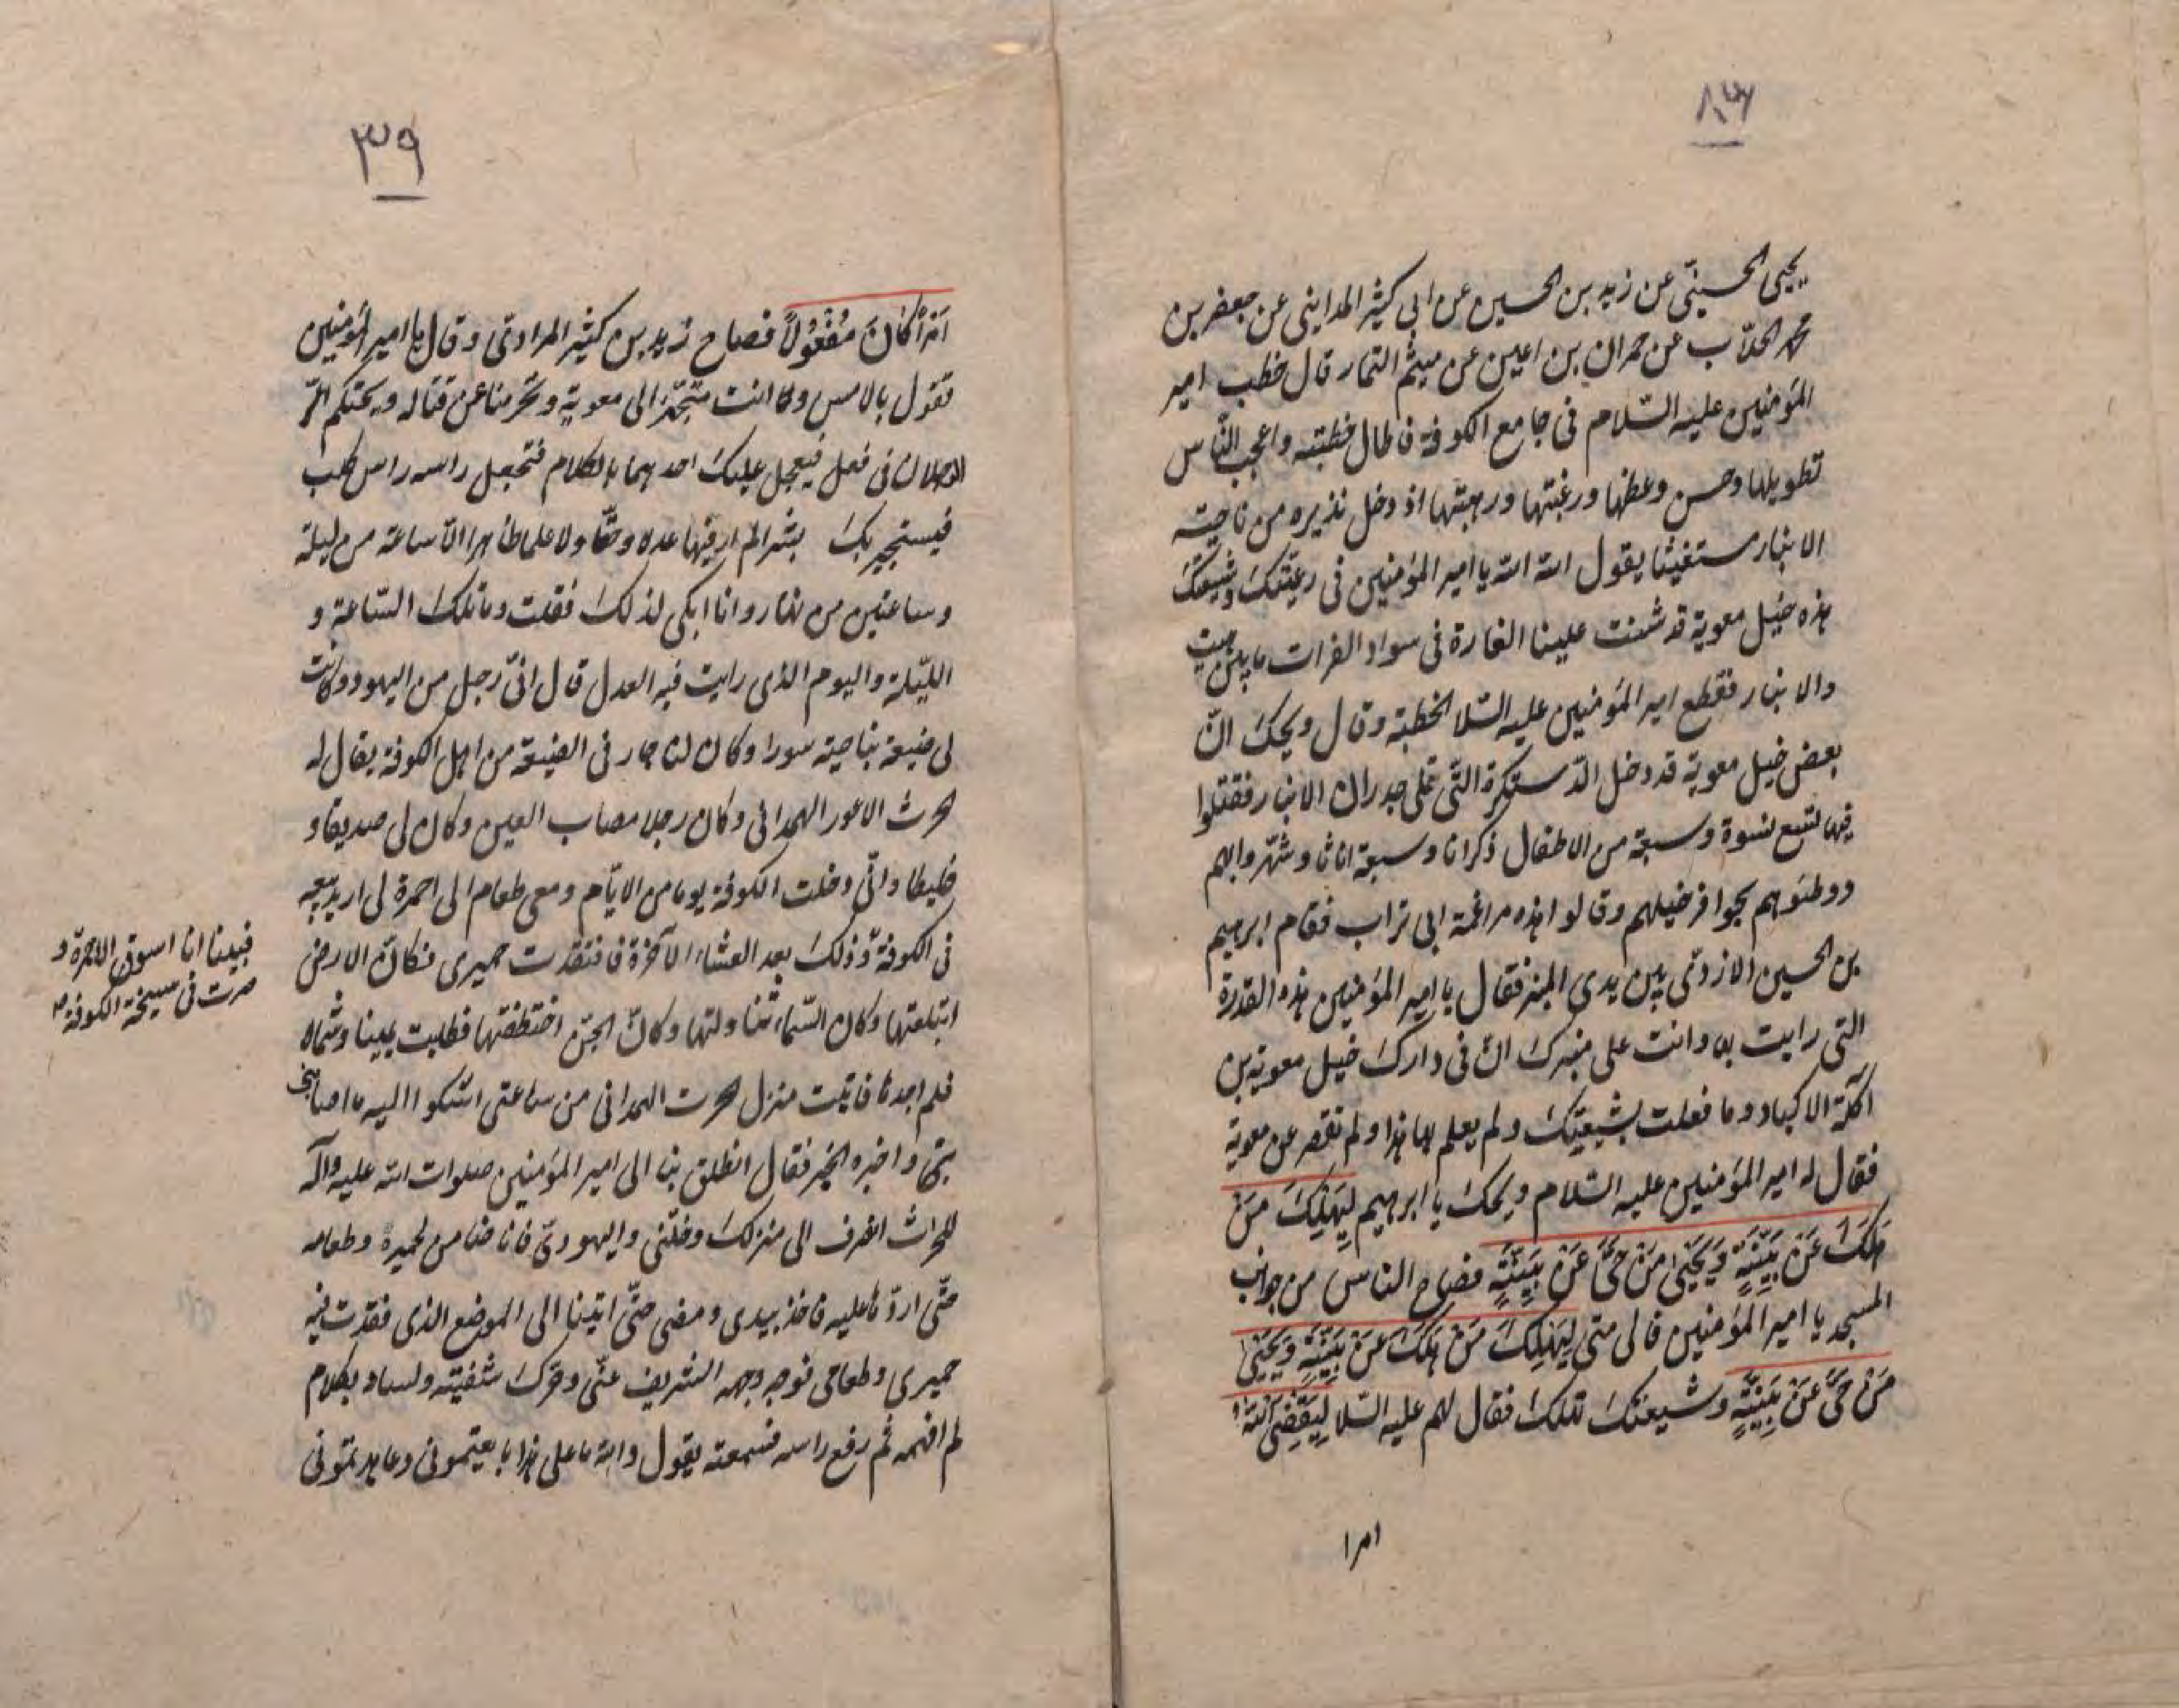 ٨٣
يحيى الحسنىّ عن زيد بن الحسين عن ابى كثير المداينى عن جعفر بن
محمد الحلّاب عن حمران بن اعين عن ميثم التمار قال خطب امير
المؤمنين عليه السّلام فى جامع الكوفة فاطال خطبته واعجب النّاس
تطويلها وحسن وعظها ورغبتها ورهبتها اذ دخل نذيره من ناحية
الانبار مستغيثا يقول الله الله يا امير المؤمنين فى رعيّتك وشيعتك
هذه خيل معوية قد شنت علينا الغارة فى سواد الفرات ما بين هيت
والانبار فقطع امير المؤمنين عليه السّلا الخطبة وقال ويحك انّ
بعض خيل معوية قد دخل الدّسكرة التّى تلى جدران الانبار فقتلوا
فيها تسع نسوة وسبعة من الاطفال ذكرانا وسبعة اناثا وشهّروا بهم
ووطئوهم بحوافر خيلهم وقالوا هذه مراغمة ابى تراب فقام ابرهيم
بن الحسين الازدىّ بين يدى المنبر فقال يا امير المؤمنين هذه القدرة
التى رايت بها وانت على منبرك انّ فى دارك خيل معوية بن
اكلة الاكباد وما فعلت بشيعتك ولم يعلم بها هذا ولم تقصر عن معوية
فقال له امير المؤمنين عليه السّلام ويحك يا ابرهيم لِيَهْلِكَ مَنْ
هَلَكَ عَنْ بَيِّنَةٍ وَيَحْيٰى مَنْ حَىَّ عَنْ بَيِّنَةٍ فصاح الناس من جوانب
المسجد يا امير المؤمنين فالى متى لِيَهْلِكَ مَنْ هَلَكَ عَنْ بَيِّنَةٍ وَيَحْيٰى
مَنْ حَىَّ عَنْ بَيِّنَةٍ وشيعتك تهلك فقال لهم عليه السّلا لِيَقْضِىَ اللهُ
امرا
٣٩
اَمْرًا كَانَ مَفْعُولًا فصاح زيد بن كثير المرادىّ وقال يا امير المؤمنين
تقول بالامس وانت متجهّز الى معوية وتحرمنا عن قتاله ويحتكم اليّ
الرجلان فى فعل فيعجل عليك احدهما بالكلام فتجعل راسه راس كلب
فيستجير بك بشرا لم ار فيها عدلا وحقّا ولا علما ظاهرا الّا ساعة من ليلة
وساعتين من نهار وانا ابكى لذلك فقلت وما تلك السّاعة و
اللّيلة واليوم الذى رايت فيه العدل قال انّى رجل من اليهود وكانت
لى ضيعة بناحية سورا وكان لنا جار فى الضيعة من اهل الكوفة يقال له
الحرث الاعور الهمدانى وكان رجلا مصاب العين وكان لى صديقا و
خليطا وانّى دخلت الكوفة يوما من الايّام ومعى طعام الى احمرة لى اريد بيعه
فى الكوفة وذلك بعد العشاء الآخرة فافتقدت حميرى فكانّ الارض
ابتلعتها وكان السّماء تناولتها وكانّ الجنّ اختطفتها فطلبت يمينا وشمالا
فلم اجدها فاتيت منزل الحرث الهمدانى من ساعتى اشكوا اليه ما اصابنى
بها واخبره الخبر فقال انطلق بنا الى امير المؤمنين صلوات الله عليه وآله
للحراث انصرف الى منزلك وخلّنى واليهودىّ فانا ضامن لحميره وطعامه
حتّى اردّها عليه فاخذ بيدى ومضى حتّى اتينا الى الموضع الذى فقدت فيه
حميرى وطعامى فوجه وجهه الشريف عنّى وحرّك شفتيه ولسانه بكلام
لم افهمه ثم رفع راسه فسمعته يقول والله ما على هذا بايعتمونى وعاهدتمونى
فبينا انا اسوق الاحمرة و
صرت فى سبخة الكوفة